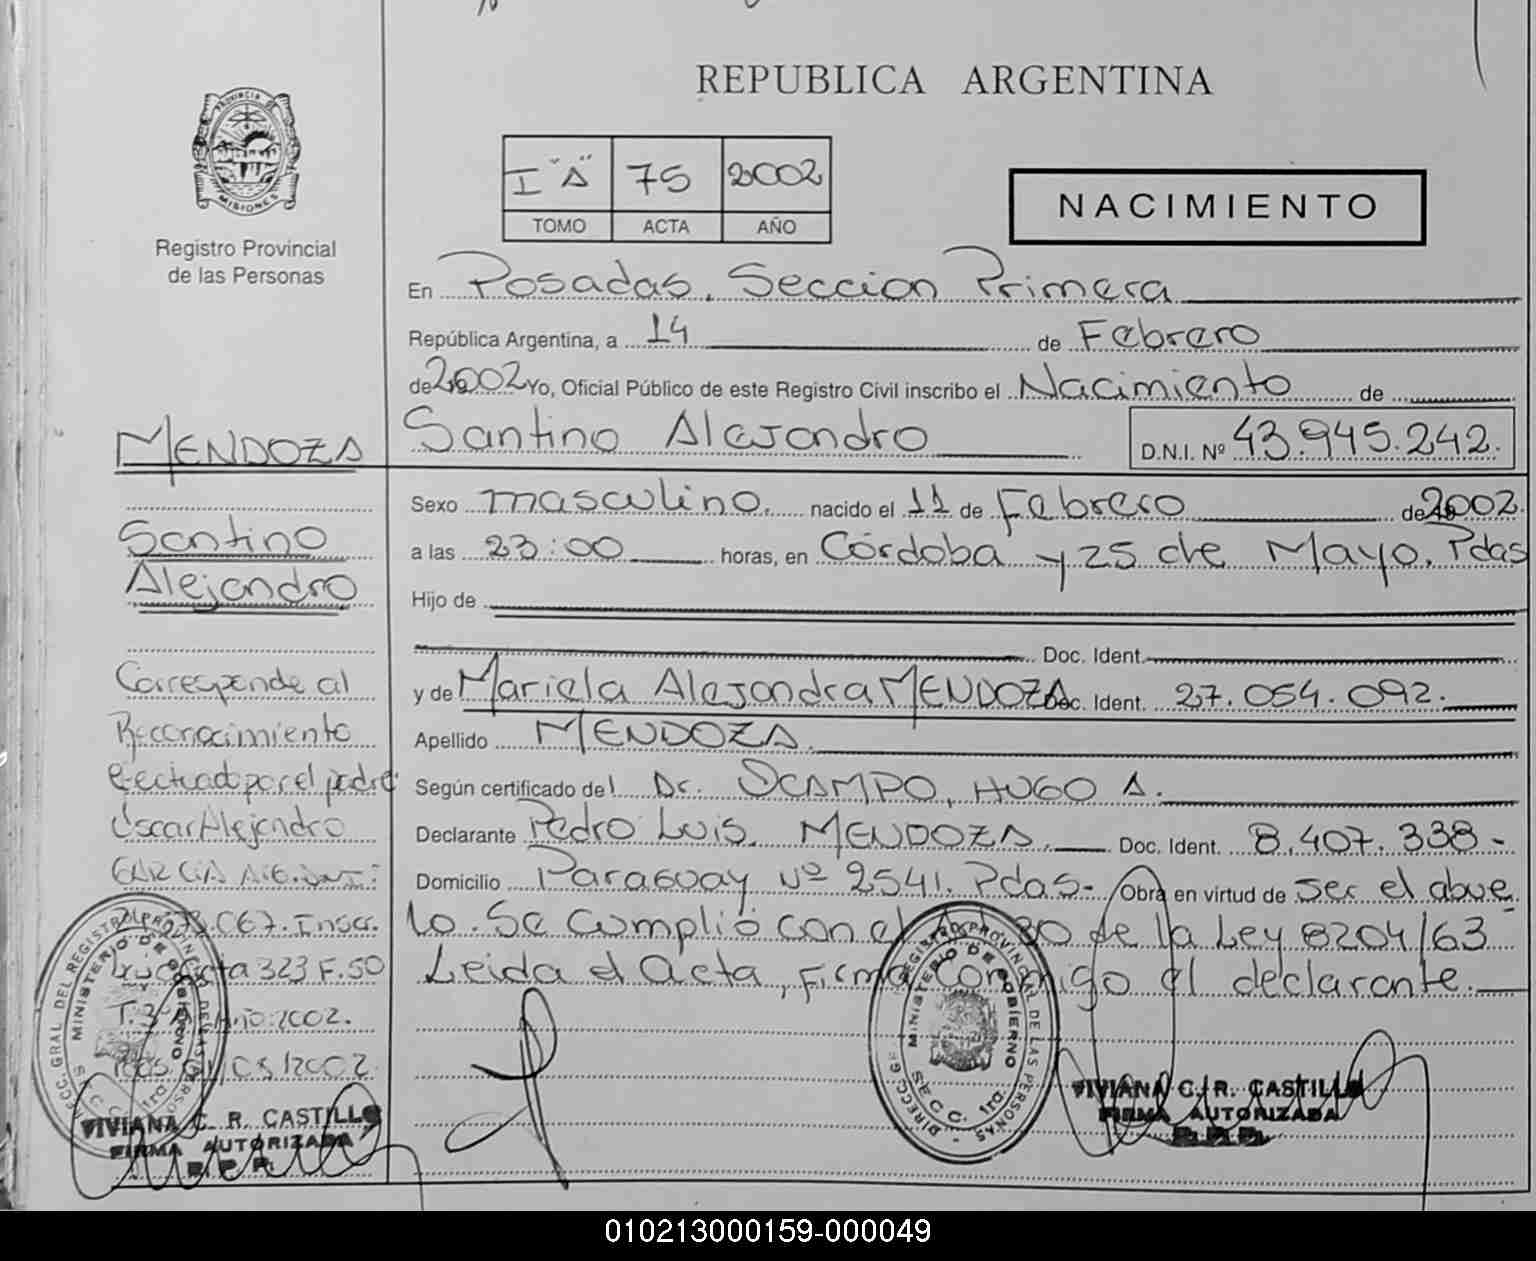 REPUBLICA ARGENTINA
PROVINCIA DE
MISIONES
Registro Provincial
de las Personas
I "A" 75 2002
TOMO ACTA AÑO
NACIMIENTO
En Posadas, Seccion Primera
República Argentina, a 14 de Febrero
de 2002 Yo, Oficial Público de este Registro Civil inscribo el Nacimiento de
Santino Alejandro D.N.I. Nº 43.945.242.
Sexo masculino, nacido el 11 de Febrero de 2002.
a las 23:00 horas, en Córdoba y 25 de Mayo, Pdas
Hijo de
Doc. Ident.
y de Mariela Alejandra MENDOZA Doc. Ident. 27.054.092.
Apellido MENDOZA
Según certificado del Dr. OCAMPO, HUGO A.
Declarante Pedro Luis, MENDOZA, Doc. Ident. 8.407.338-
Domicilio Paraguay Nº 2541. Pdas- Obra en virtud de ser el abue
lo. Se cumplió con el Art. 30 de la Ley 8204/63
Leida el acta, firma conmigo el declarante.
MENDOZA
Santino
Alejandro
Corresponde al
Reconocimiento
efectuado por el padre
Oscar Alejandro
GARCIA
067. Inscr.
Acta 323 F. 50
T. 3º Año: 2002.
Pdas. /05/2002.
DIRECC. GRAL DEL REGISTRO PROVINCIAL DE LAS PERSONAS
MINISTERIO DE GOBIERNO
S E C C. 1ra.
VIVIANA C. R. CASTILLO
FIRMA AUTORIZADA
R. P. P.
DIRECC. GRAL DEL REGISTRO PROVINCIAL DE LAS PERSONAS
MINISTERIO DE GOBIERNO
S E C C. 1ra.
VIVIANA C. R. CASTILLO
FIRMA AUTORIZADA
R. P. P.
010213000159-000049